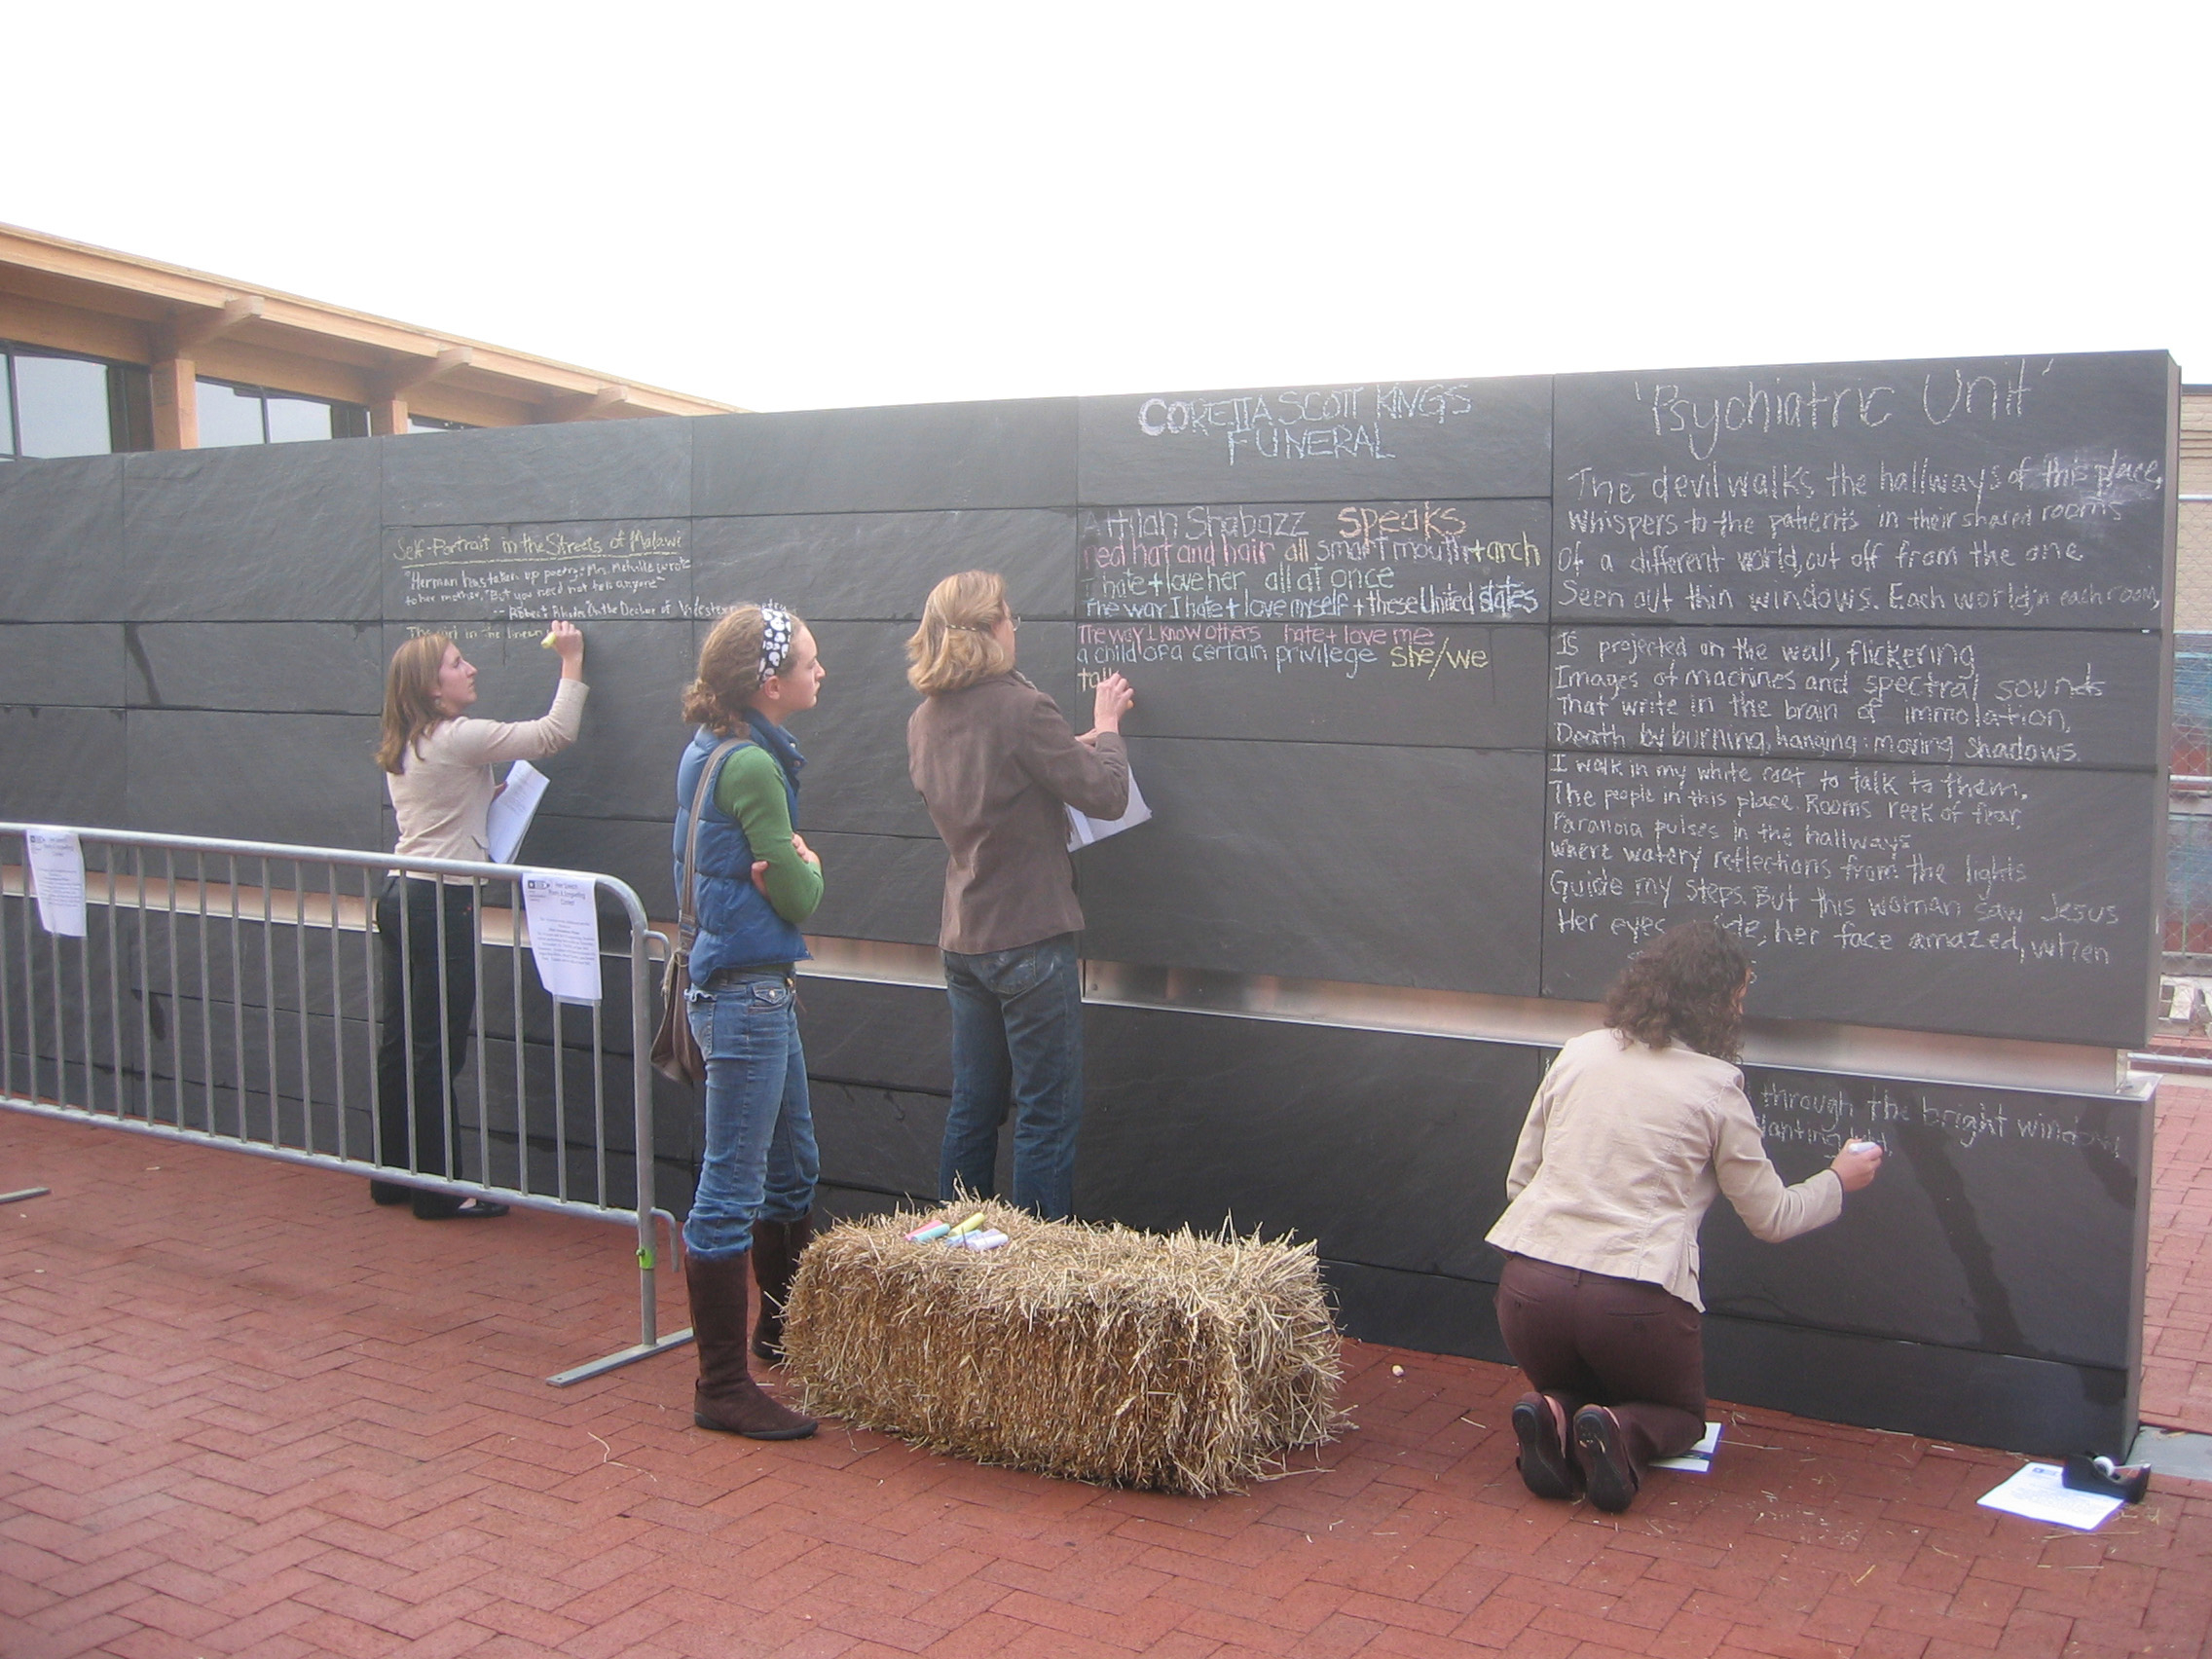 Self-Portrait in the Streets of Malawi
"Herman has taken up poetry," Mrs. Melville wrote
to her mother, "But you need not tell anyone"
-- Robert Bly, On the Decline of
The girl in the linen
CORETTA SCOTT KING'S
FUNERAL
Attilah Shabazz speaks
red hat and hair all smart mouth + arch
I hate + love her all at once
The way I hate + love myself + these United States
The way I know others hate + love me
a child of a certain privilege she/we
talk
'Psychiatric Unit'
The devil walks the hallways of this place,
Whispers to the patients in their shared rooms
Of a different world, cut off from the one
Seen out thin windows. Each world, in each room,
Is projected on the wall, flickering
Images of machines and spectral sounds
That write in the brain of immolation,
Death by burning, hanging: moving shadows.
I walk in my white coat to talk to them,
The people in this place. Rooms reek of fear,
Paranoia pulses in the hallways
Where watery reflections from the lights
Guide my steps. But this woman saw Jesus
Her eyes, her face amazed, when
through the bright window,